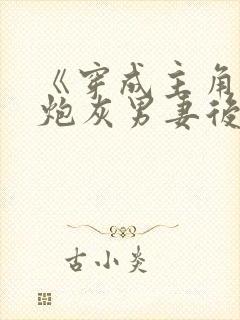 《穿成主角
炮灰男妻後
古小炎